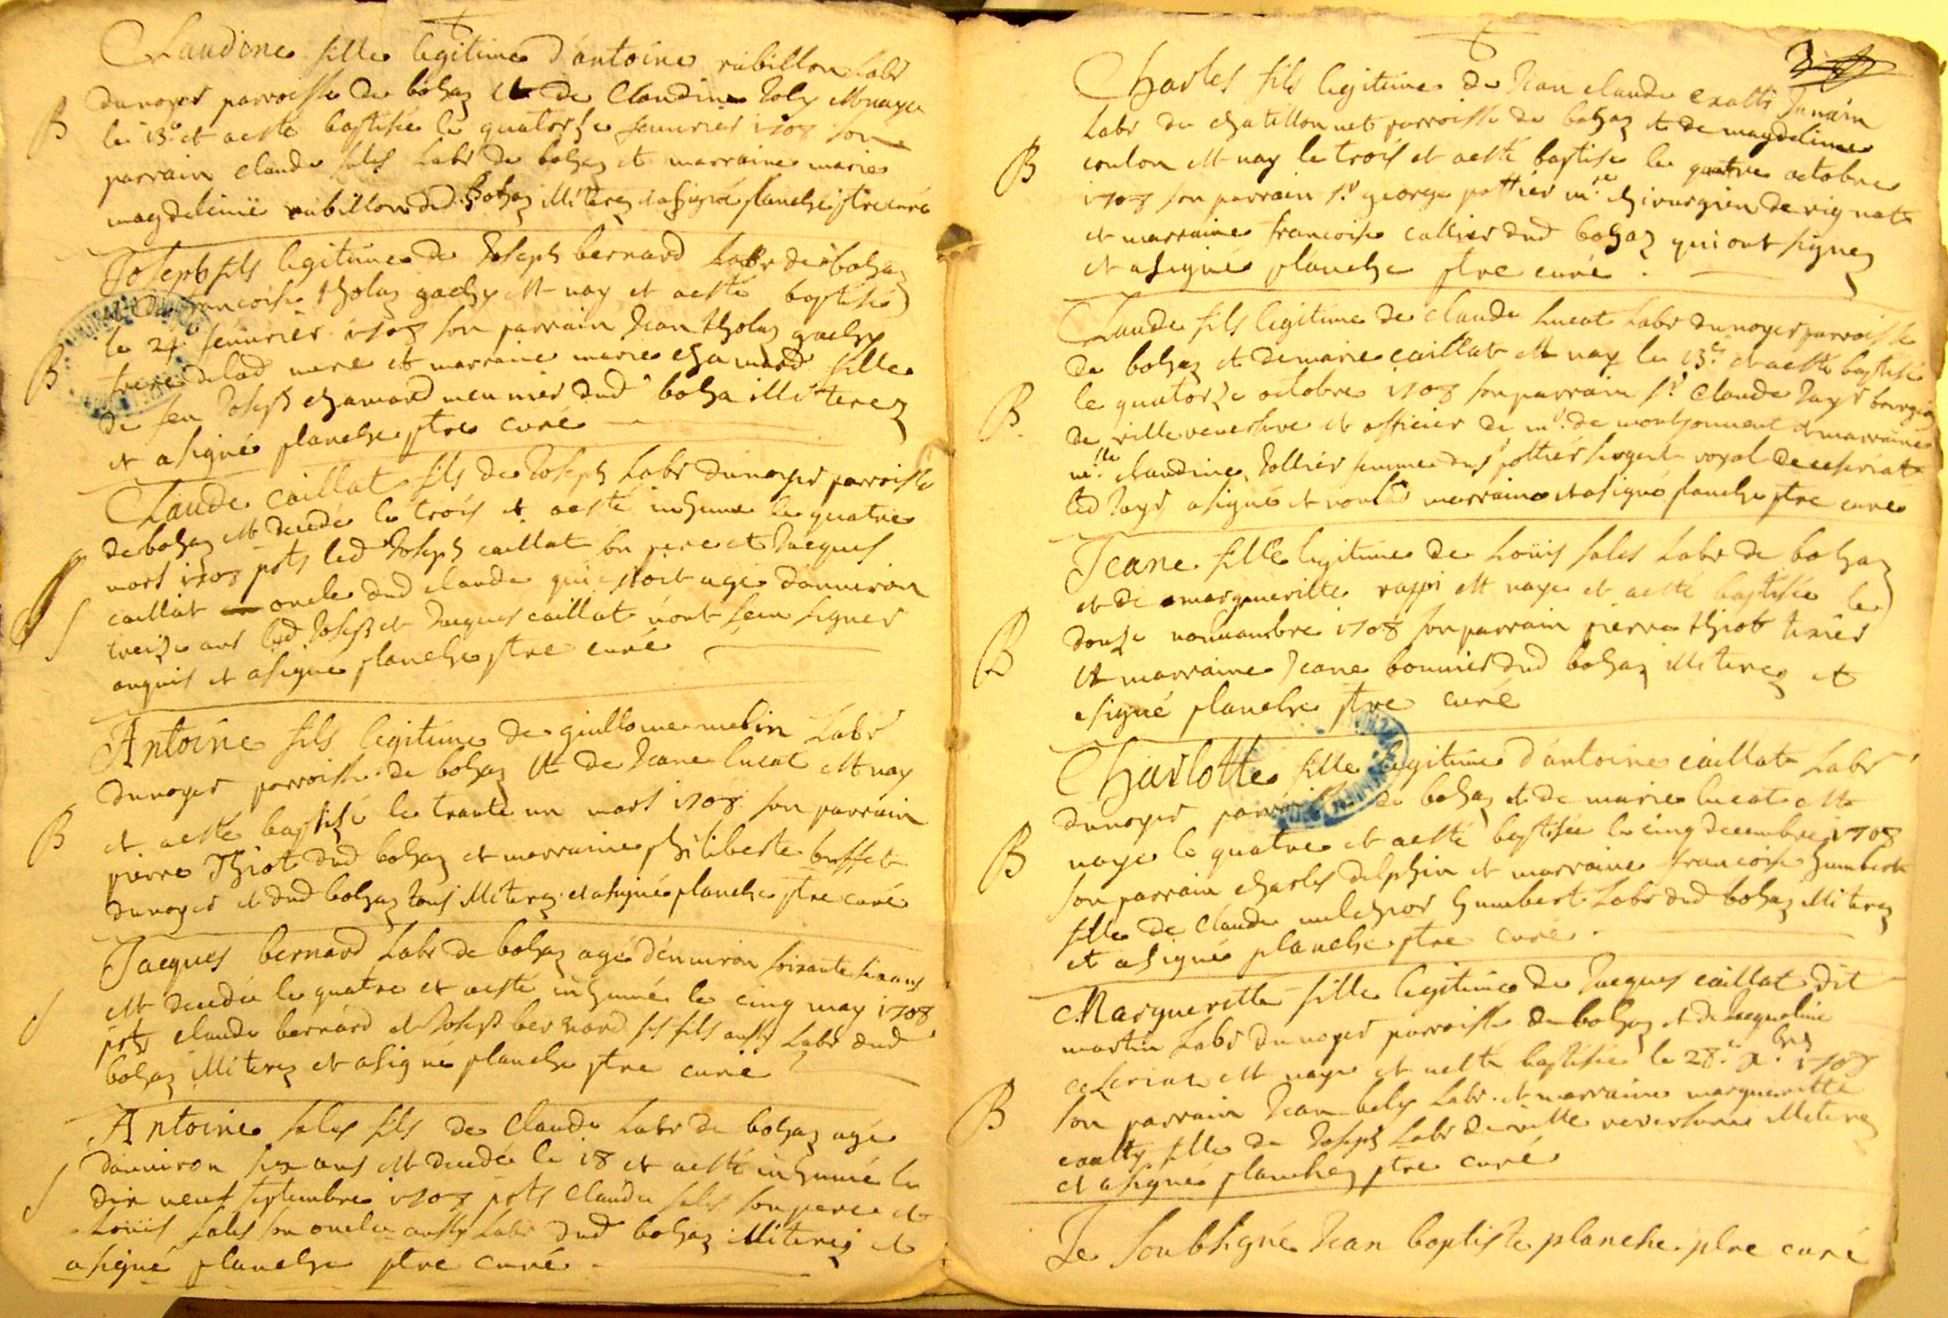 Claudine fille legitime d'antoine rubillon Labr
dunoyer parroisse de bohaz et de Claudine Joly est naye
le 13.e et aesté baptisée le quatorze feuurier 1708 son
parrain claude sales Labr de bohaz et marraine marie
magdeleine rubillon dud. bohaz illiterez et asigné planche ptre curé
Joseph fils legitime de Joseph bernard Labr de bohaz
et de francoise tholaz gachy est nay et aesté baptisé
le 24.e feuurier 1708 son parrain Jean tholaz gachy
frere delad mere et marraine marie chamard fille
de feu Joseph chamard meunier dud bohaz illiterez
et asigné planche ptre curé
Claude caillat fils de Joseph Labr dunoyer parroisse
de bohaz est decedé le trois et aesté inhumé le quatre
mars 1708 pnts led Joseph caillat son pere et Jacques
caillat oncle dud claude qui estoit agé d'enuiron
treize ans led Joseph et Jacques caillat n'ont sceu signer
enquis et asigné planche ptre curé
Antoine fils legitime de guillaume melin Labr
dunoyer parroisse de bohaz et de Jeane lucat est nay
et aesté baptizé le trante un mars 1708 son parrain
pierre Thiot dud bohaz et marraine philiberte buffet
dunoyer et dud bohaz tous illiterez et asigné planche ptre curé
Jacques bernard Labr de bohaz agé d'enuiron soixante six ans
est decedé le quatre et aesté inhumé le cinq may 1708
pnts claude bernard et Joseph bernard ses fils aussy Labr dud
bohaz illiterez et asigné planche ptre curé
Antoine sales fils de Claude Labr de bohaz agé
d'enuiron six ans est decedé le 18 et aesté inhumé le
dix neuf septembre 1708 pnts Claude sales son pere et
Loüis sales son oncle aussy Labr dud bohaz illiterez et
asigné planche ptre curé
Charles fils legitime de Jean claude
Labr de chatillonnet parroisse de bohaz et de magdeleine
coulon est nay le trois et aesté baptisé le quatre octobre
1708 son parrain Sr george pottier me chirurgien de rignat
et marraine francoise callier dud bohaz qui ont signez
et asigné planche ptre curé
Claude fils legitime de claude lucat Labr dunoyer parroisse
de bohaz et de marie caillat est nay le 13.e et aesté baptisé
le quatorze octobre 1708 son parrain Sr Claude Jayr bourgeois
de ville reuersure et officier de mr de montjouuent et marraine
mlle claudine Jollier femme dud Sr pottier sergent royal de
led Jayr asigné et non lad marraine et asigné planche ptre curé
Jeane fille legitime de Loüis sales Labr de bohaz
et de margueritte rappi est naye et aesté baptisée le
douze nouuambre 1708 son parrain pierre thiot tixier
et marraine Jeane bonnier dud bohaz illiterez et
asigné planche ptre curé
Charlotte fille legitime d'antoine caillat Labr
dunoyer parroisse de bohaz et de marie lucat est
naye le quatre et aesté baptisée le cinq decembre 1708
son parrain charles delphin et marraine francoise humbert
fille de Claude melchior humbert Labr dud bohaz illiterez
et asigné planche ptre curé
Marguerette fille legitime de Jacques caillat dit
martin Labr dunoyer parroisse de bohaz et de Jaqueline
est naye et aesté baptisée le 28.e xbre 1708
son parrain Jean bely Labr et marraine marguerette
fille de Joseph Labr de ville reuersure illiterez
et asigné planche ptre curé
Je soubsigné Jean baptiste planche ptre curé